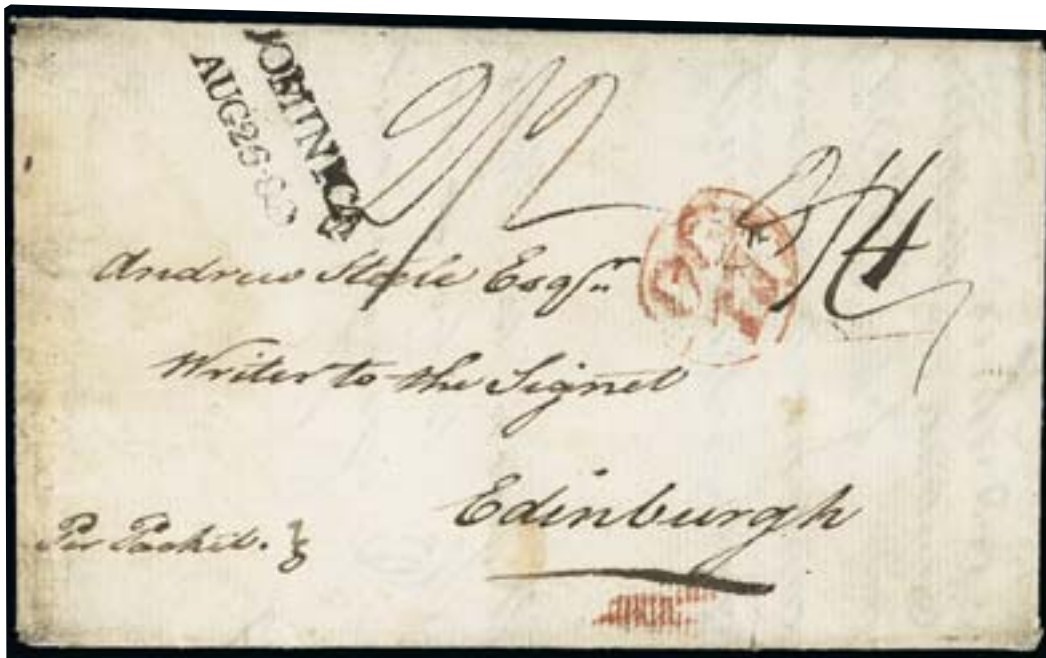 DOMINICA
AUG 26
2/2
2/4
Andrew Steele Esqr
Writer to the Signet
Edinburgh
Per Packet.